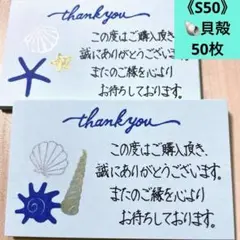 《S50》
🐚貝殻
50枚
thank you
この度はご購入頂き、
誠にありがとうございます。
またのご縁を心より
お待ちしております。
thank you
この度はご購入頂き、
誠にありがとうございます。
またのご縁を心より
お待ちしております。